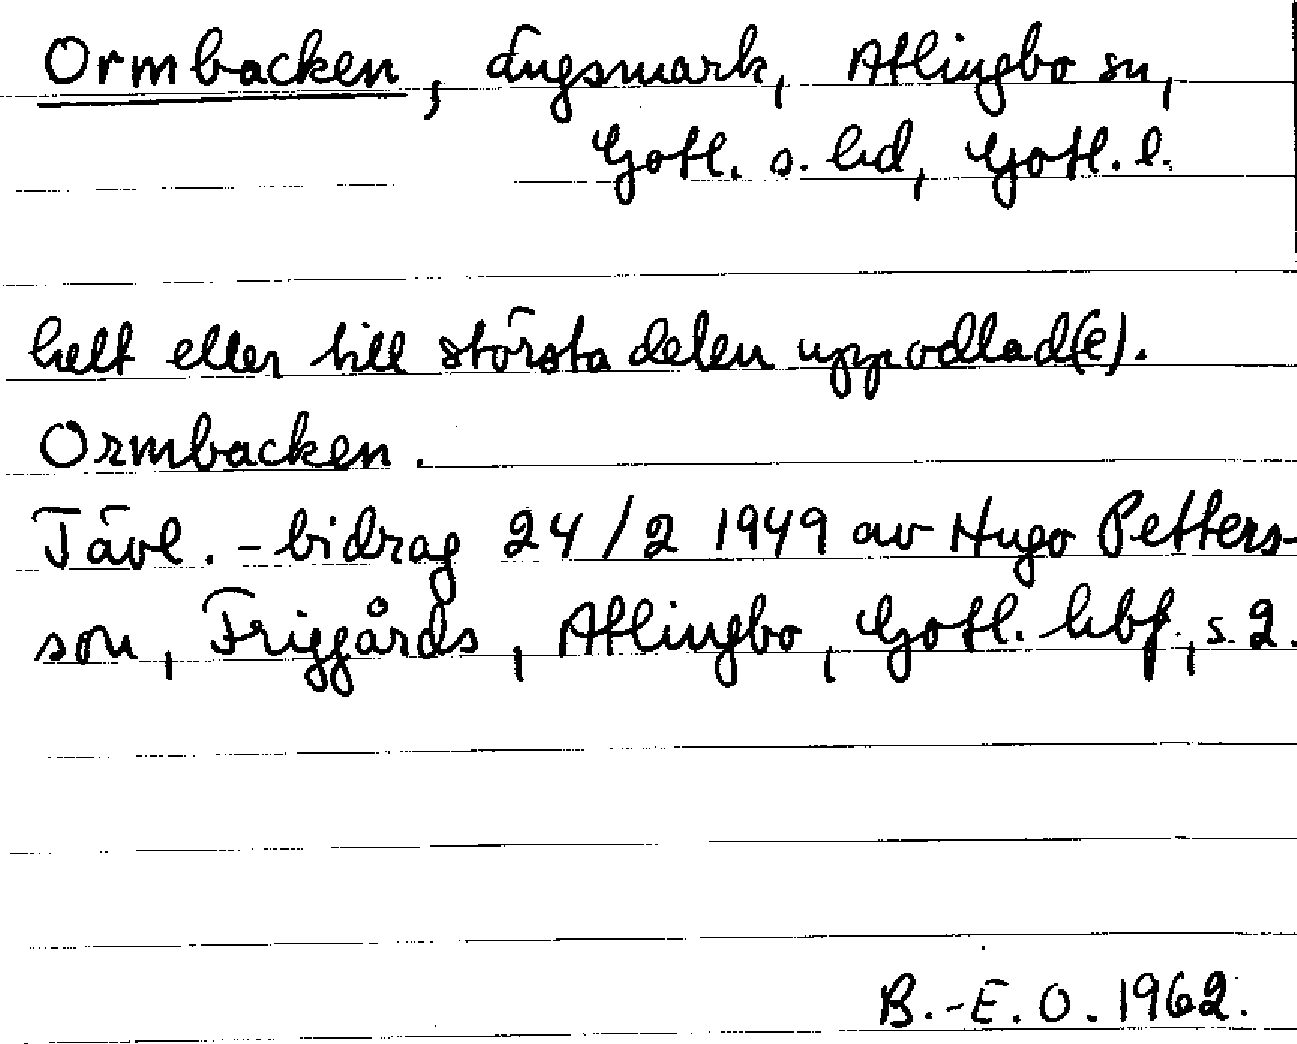 Ormbacken, ängsmark, Atlingbo sn,
Gotl. s. hd, Gotl. l.
helt eller till största delen uppodlad(e).
Ormbacken.
Tävl.-bidrag 24/2 1949 av Hugo Petters-
son, Friggårds, Atlingbo, Gotl. hbf., s. 2.
B.-E. O. 1962.